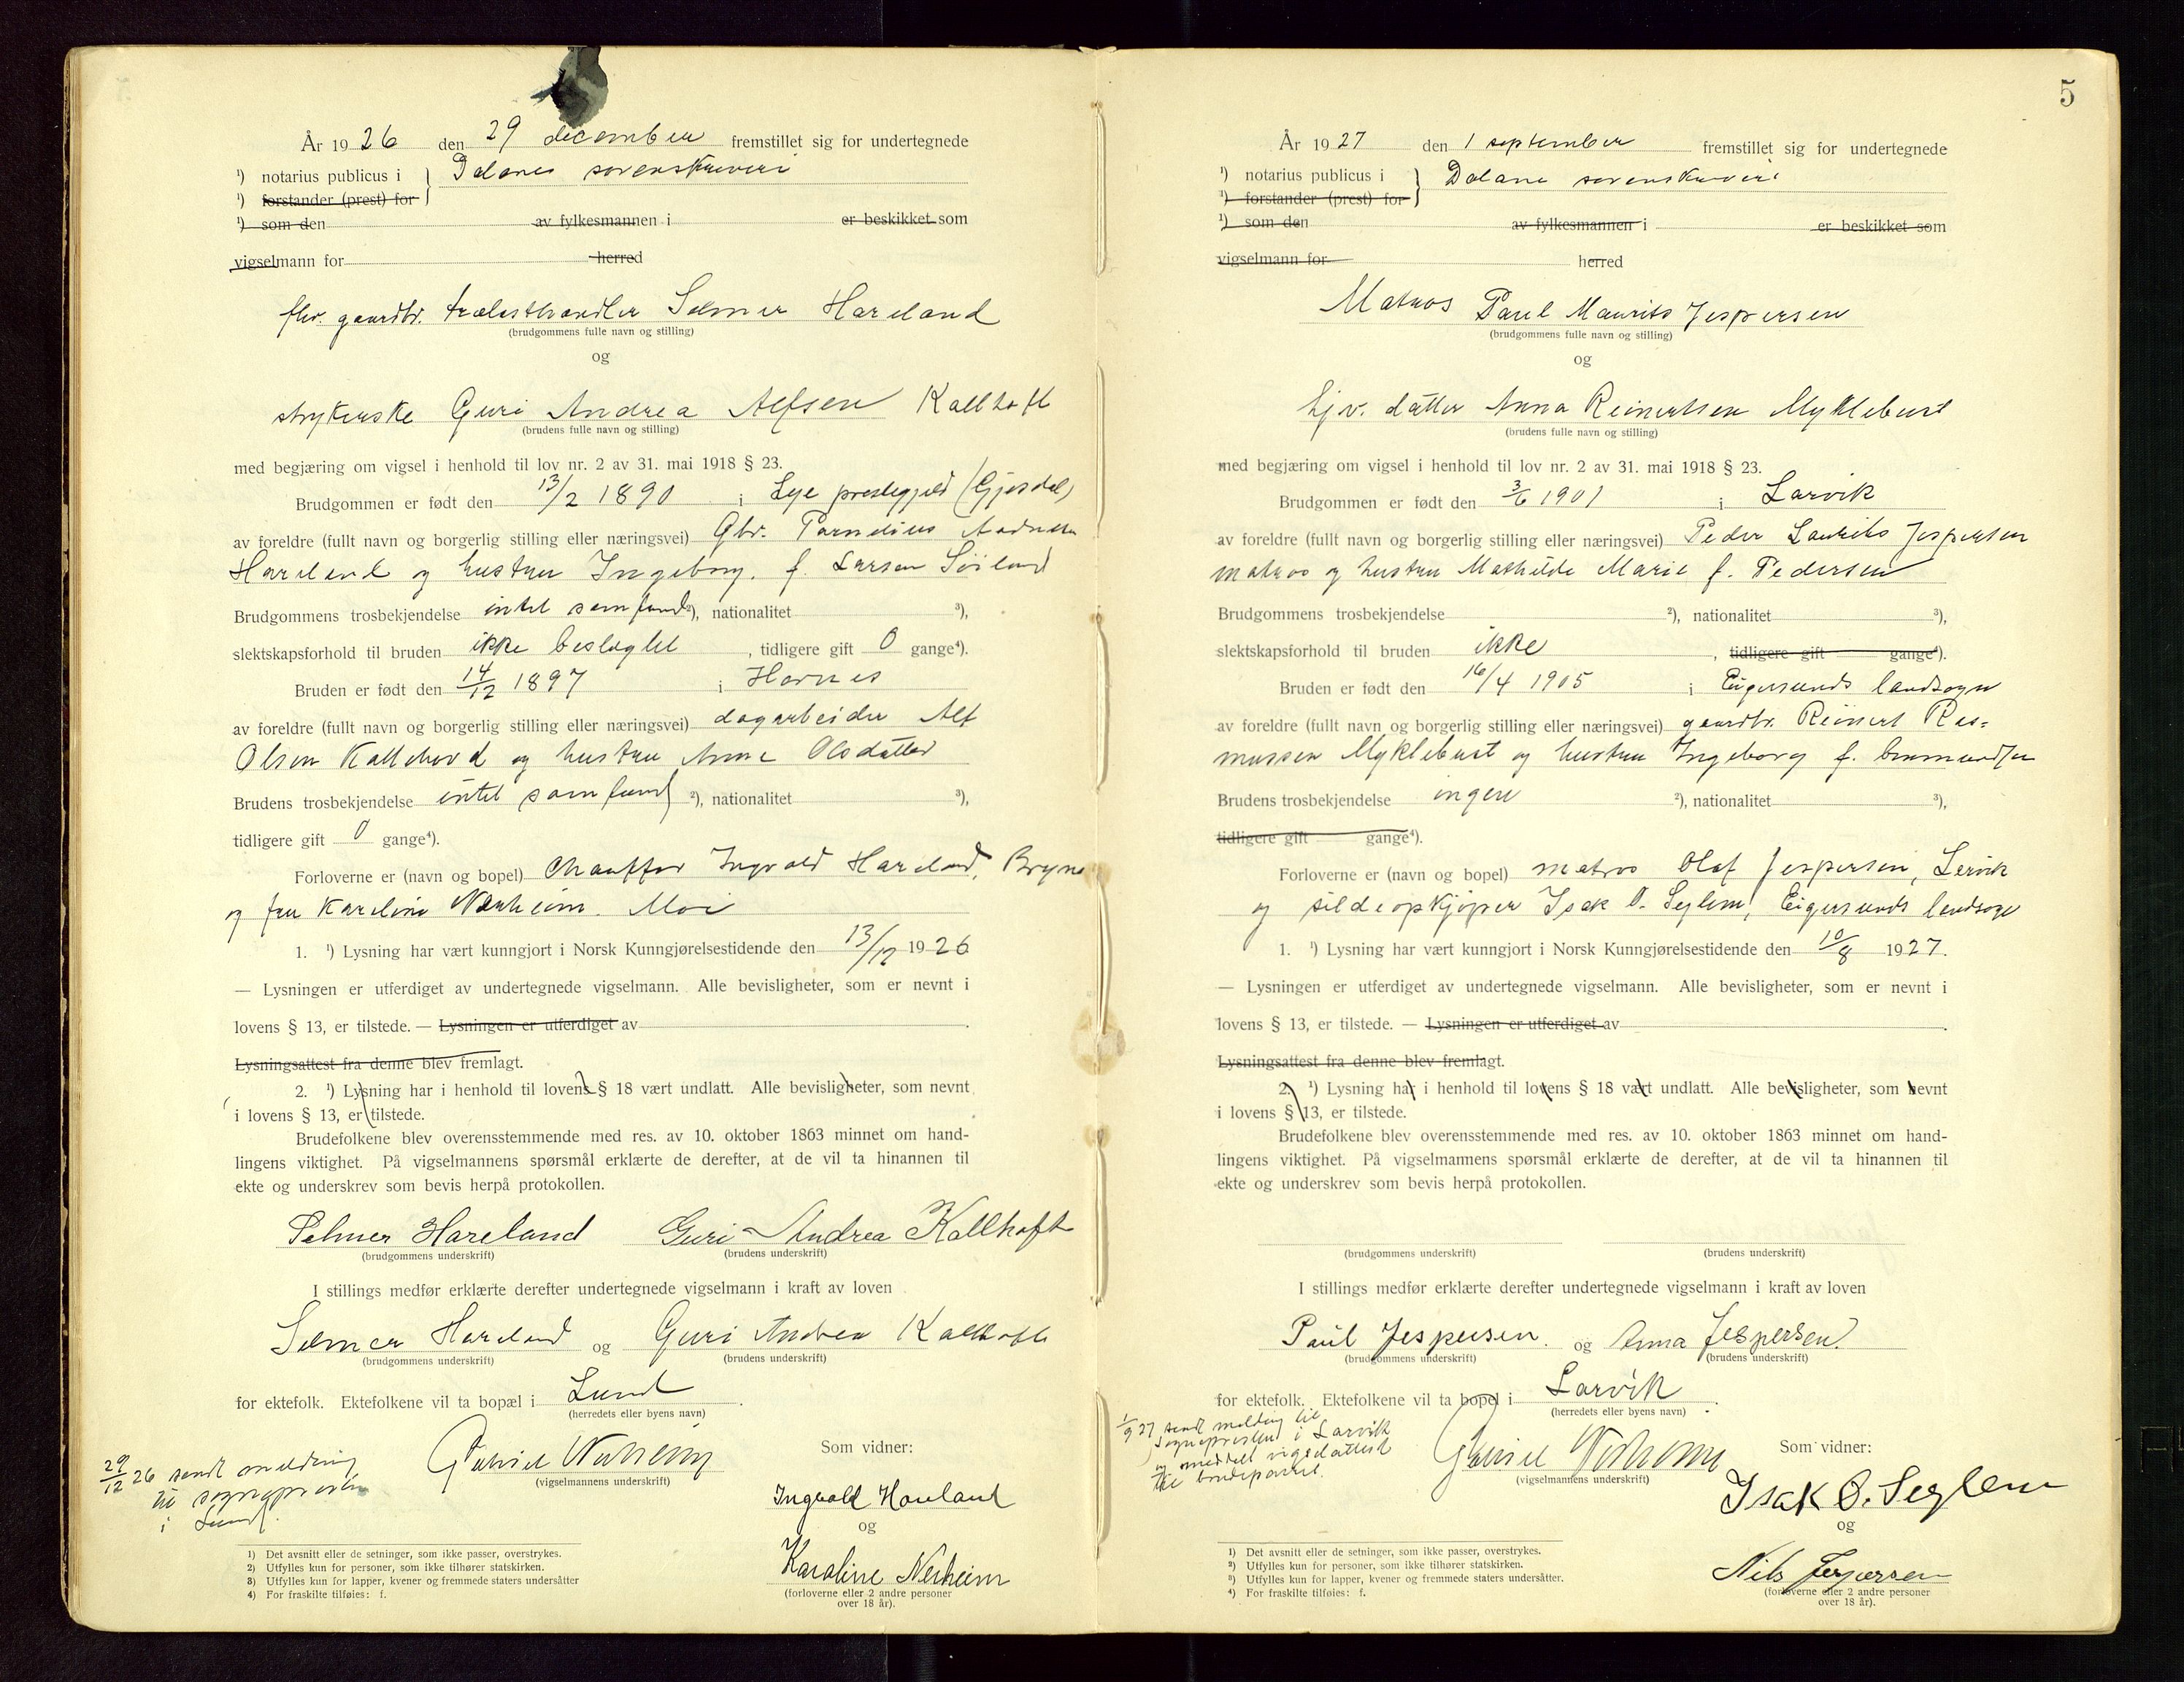 År 1926 den 29 december fremstillet sig for undertegnede
¹) notarius publicus i } Dalanes sorenskriveri
¹) forstander (prest) for
¹) som den av fylkesmannen i er beskikket som
vigselmann for herred
fhv. gaardbr. trælasthandler Selmer Hareland
(brudgommens fulle navn og stilling)
og
strykerske Guri Andrea Alfsen Kallhoft
(brudens fulle navn og stilling)
med begjæring om vigsel i henhold til lov nr. 2 av 31. mai 1918 § 23.
Brudgommen er født den 13/2 1890 i Lye prestegjeld (Gjesdal)
av foreldre (fullt navn og borgerlig stilling eller næringsvei) Gbr. Parnelius Aadnesen
Hareland og hustru Ingeborg. f. Larsen
Brudgommens trosbekjendelse intet samfund ²), nationalitet ³),
slektskapsforhold til bruden ikke beslagtet, tidligere gift 0 gange⁴).
Bruden er født den 14/12 1897 i Hornes
av foreldre (fullt navn og borgerlig stilling eller næringsvei) dagarbeider Alf
Olsen og hustru Anne Olsdatter
Brudens trosbekjendelse intet samfund ²), nationalitet ³),
tidligere gift 0 gange⁴).
Forloverne er (navn og bopel) Chauffør Ingvald Hareland, Bryne
og fru Karoline Nerheim. Moi
1. ¹) Lysning har vært kunngjort i Norsk Kunngjørelsestidende den 13/12 1926
— Lysningen er utferdiget av undertegnede vigselmann. Alle bevisligheter, som er nevnt i
lovens § 13, er tilstede. — Lysningen er utferdiget av .
Lysningsattest fra denne blev fremlagt.
2. ¹) Lysning har i henhold til lovens § 18 vært undlatt. Alle bevisligheter, som nevnt
i lovens § 13, er tilstede.
Brudefolkene blev overensstemmende med res. av 10. oktober 1863 minnet om hand-
lingens viktighet. På vigselmannens spørsmål erklærte de derefter, at de vil ta hinannen til
ekte og underskrev som bevis herpå protokollen.
Selmer Hareland Guri Andrea Kallhoft
(brudgommens underskrift) (brudens underskrift)
I stillings medfør erklærte derefter undertegnede vigselmann i kraft av loven
Selmer Hareland og Guri Andrea Kallhoft
(brudgommens underskrift) (brudens underskrift)
for ektefolk. Ektefolkene vil ta bopæl i Lund.
(herredets eller byens navn)
29/12 26 sendt melding
til sognepresten
i Lund.
Gabriel Nerheim
(vigselmannens underskrift)
Som vidner:
Ingvald Hareland
og
Karoline Nerheim
(forloverne eller 2 andre personer
over 18 år).
1) Det avsnitt eller de setninger, som ikke passer, overstrykes.
2) Utfylles kun for personer, som ikke tilhører statskirken.
3) Utfylles kun for lapper, kvener og fremmede staters undersåtter
4) For fraskilte tilføies: f.
5
År 1927 den 1 september fremstillet sig for undertegnede
¹) notarius publicus i } Dalane sorenskriveri
¹) forstander (prest) for
¹) som den av fylkesmannen i er beskikket som
vigselmann for herred
Matros Paul Maurits Jespersen
(brudgommens fulle navn og stilling)
og
hjv. datter Anna Reinertsen Myklebust
(brudens fulle navn og stilling)
med begjæring om vigsel i henhold til lov nr. 2 av 31. mai 1918 § 23.
Brudgommen er født den 3/6 1901 i Larvik
av foreldre (fullt navn og borgerlig stilling eller næringsvei) Peder Laurits Jespersen
matros og hustru Mathilde Marie f. Pedersen
Brudgommens trosbekjendelse ²), nationalitet ³),
slektskapsforhold til bruden ikke, tidligere gift gange⁴).
Bruden er født den 16/4 1905 i Eigersunds landsogn
av foreldre (fullt navn og borgerlig stilling eller næringsvei) gaardbr. Reinert Ras-
mussen Myklebust og hustru Ingeborg f.
Brudens trosbekjendelse ingen ²), nationalitet ³),
tidligere gift gange⁴).
Forloverne er (navn og bopel) matros Olaf Jespersen, Larvik
og sildeopkjøper Isak O. Seglem, Eigersunds landsogn
1. ¹) Lysning har vært kunngjort i Norsk Kunngjørelsestidende den 10/8 1927.
— Lysningen er utferdiget av undertegnede vigselmann. Alle bevisligheter, som er nevnt i
lovens § 13, er tilstede. — Lysningen er utferdiget av .
Lysningsattest fra denne blev fremlagt.
2. ¹) Lysning har i henhold til lovens § 18 vært undlatt. Alle bevisligheter, som nevnt
i lovens § 13, er tilstede.
Brudefolkene blev overensstemmende med res. av 10. oktober 1863 minnet om hand-
lingens viktighet. På vigselmannens spørsmål erklærte de derefter, at de vil ta hinannen til
ekte og underskrev som bevis herpå protokollen.
(brudgommens underskrift) (brudens underskrift)
I stillings medfør erklærte derefter undertegnede vigselmann i kraft av loven
Paul Jespersen. og Anna Jespersen.
(brudgommens underskrift) (brudens underskrift)
for ektefolk. Ektefolkene vil ta bopel i Larvik.
(herredets eller byens navn)
1/9 27 sendt melding til
sognepresten i Larvik
og meddelt vigselattest
til brudeparret.
Gabriel Nerheim
(vigselmannens underskrift)
Som vidner:
Isak O. Seglem
og
Nils Jespersen
(forloverne eller 2 andre personer
over 18 år).
1) Det avsnitt eller de setninger, som ikke passer, overstrykes.
2) Utfylles kun for personer, som ikke tilhører statskirken.
3) Utfylles kun for lapper, kvener og fremmede staters undersåtter.
4) For fraskilte tilføies: f.